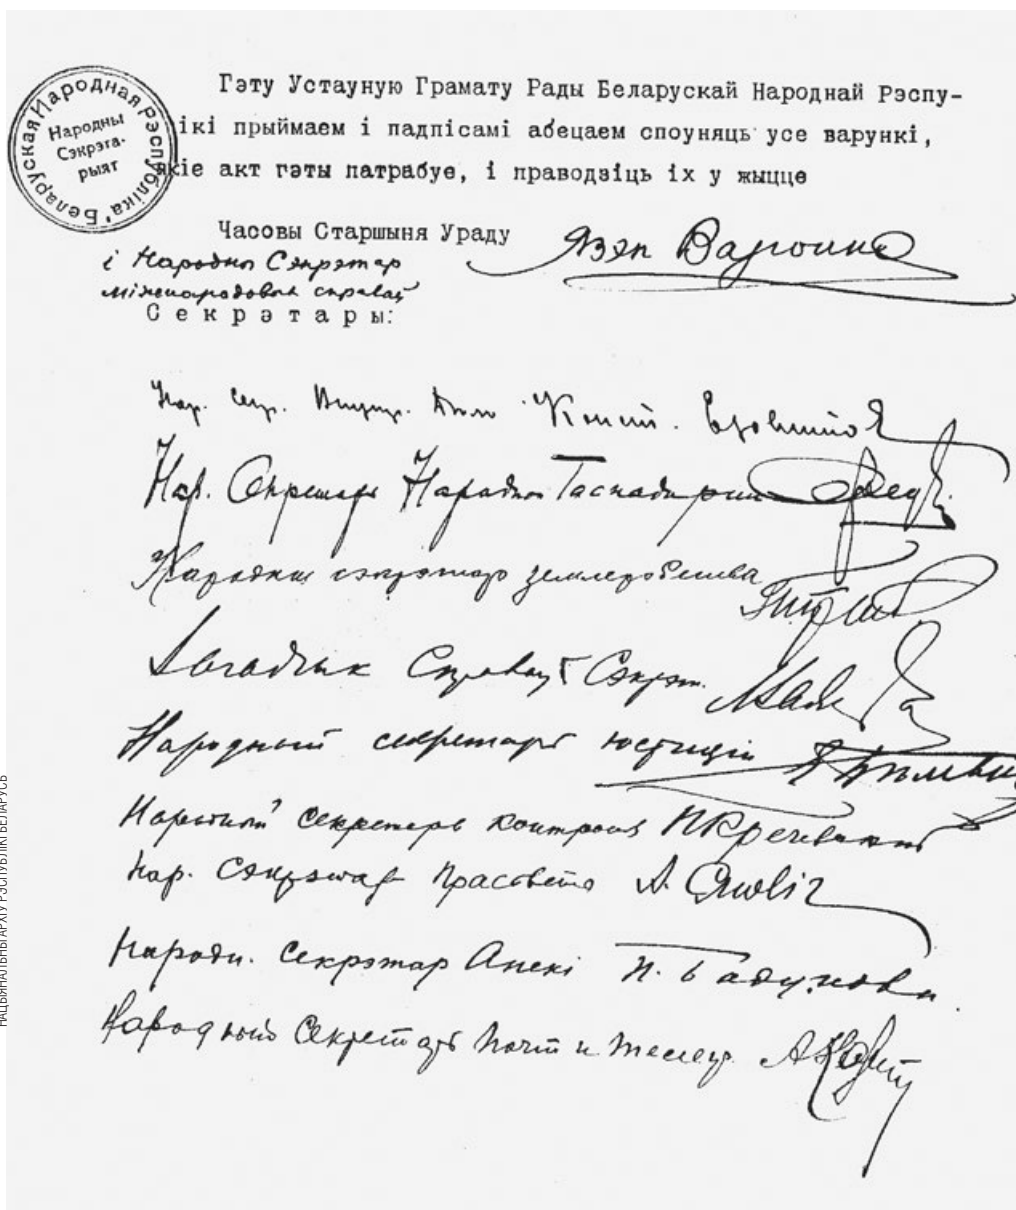 Беларуская Народная Рэспубліка
Народны
Сэкрэта-
рыят
Гэту Устауную Грамату Рады Беларускай Народнай Рэспу-
ікі прыймаем і падпісамі абецаем споуняць усе варункі,
якіе акт гэты патрабуе, і праводзіць іх у жыцце
Часовы Старшыня Ураду Язэп Варонко
і Народны Сэкрэтар
міжнародовых справаў
Секрэтары:
Нар. Сэкр. Кост.
Нар. Секретарь Народной Гаспадарки
Народны сэкрэтар земледобства
Загадчык Справаў Сэкрэт.
Народный секретарь юстиции
Народный секретарь контроля П Кречевский
Нар. Сэкрэтар Прасвета А. Смоліч
Народн. Секрэтар Апекі П. Бадунова
Народный Секретарь Почт и телегр. А Карач
НАЦЫЯНАЛЬНЫ АРХІЎ РЭСПУБЛІКІ БЕЛАРУСЬ